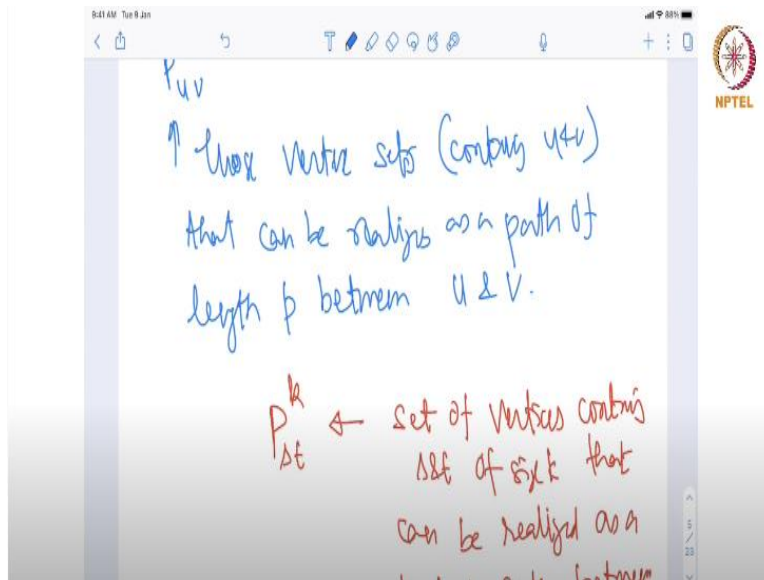 9:41 AM Tue 9 Jan
88%
NPTEL
P u v
↑ those vertex sets (contains u & v)
that can be realized as a path of
length p between u & v.
P k s t ← set of vertices contains
s & t of size k that
can be realized as a
between
5 / 23